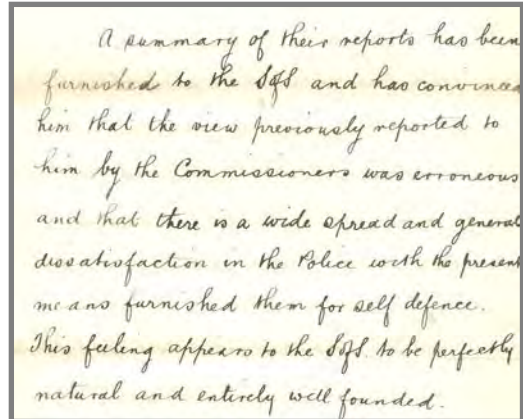 A summary of their reports has been
furnished to the SofS and has convinced
him that the view previously reported to
him by the Commissioners was erroneous
and that there is a wide spread and general
dissatisfaction in the Police with the present
means furnished them for self defence.
This feeling appears to the SofS. to be perfectly
natural and entirely well founded.